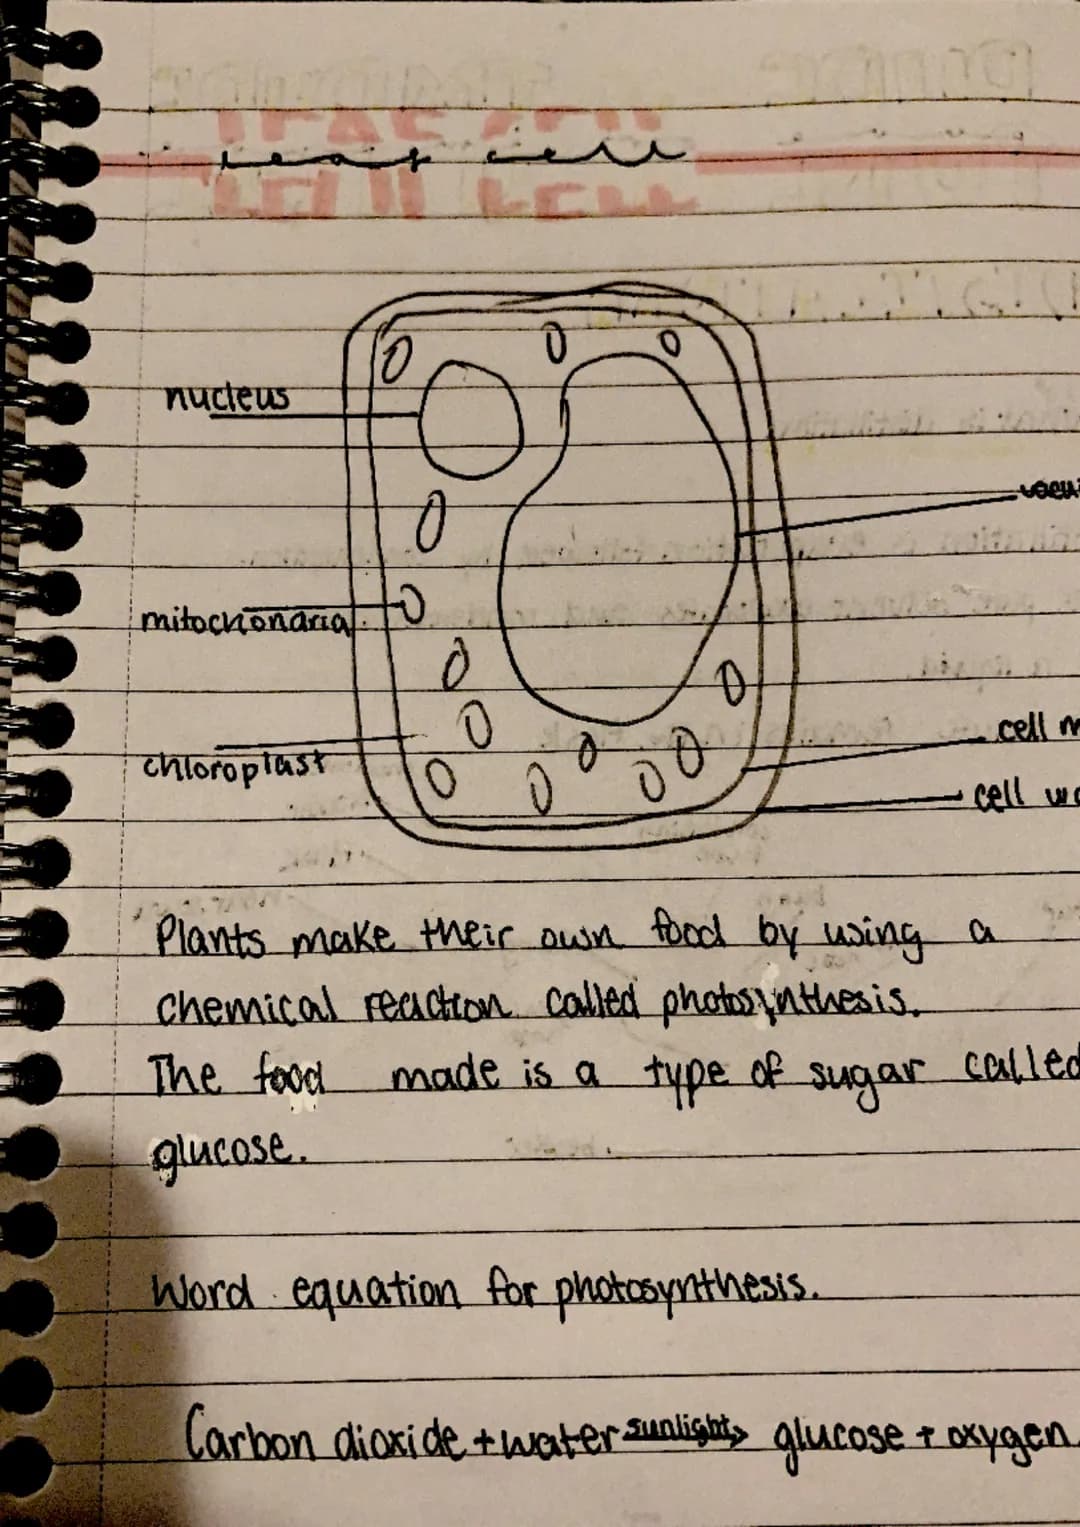 leaf cell
nucleus
mitochondria
cell m
chloroplast
cell wa
Plants make their own food by using a
chemical reaction called photosynthesis.
The food made is a type of sugar called
glucose.
Word equation for photosynthesis.
Carbon dioxide + water sunlight> glucose + oxygen